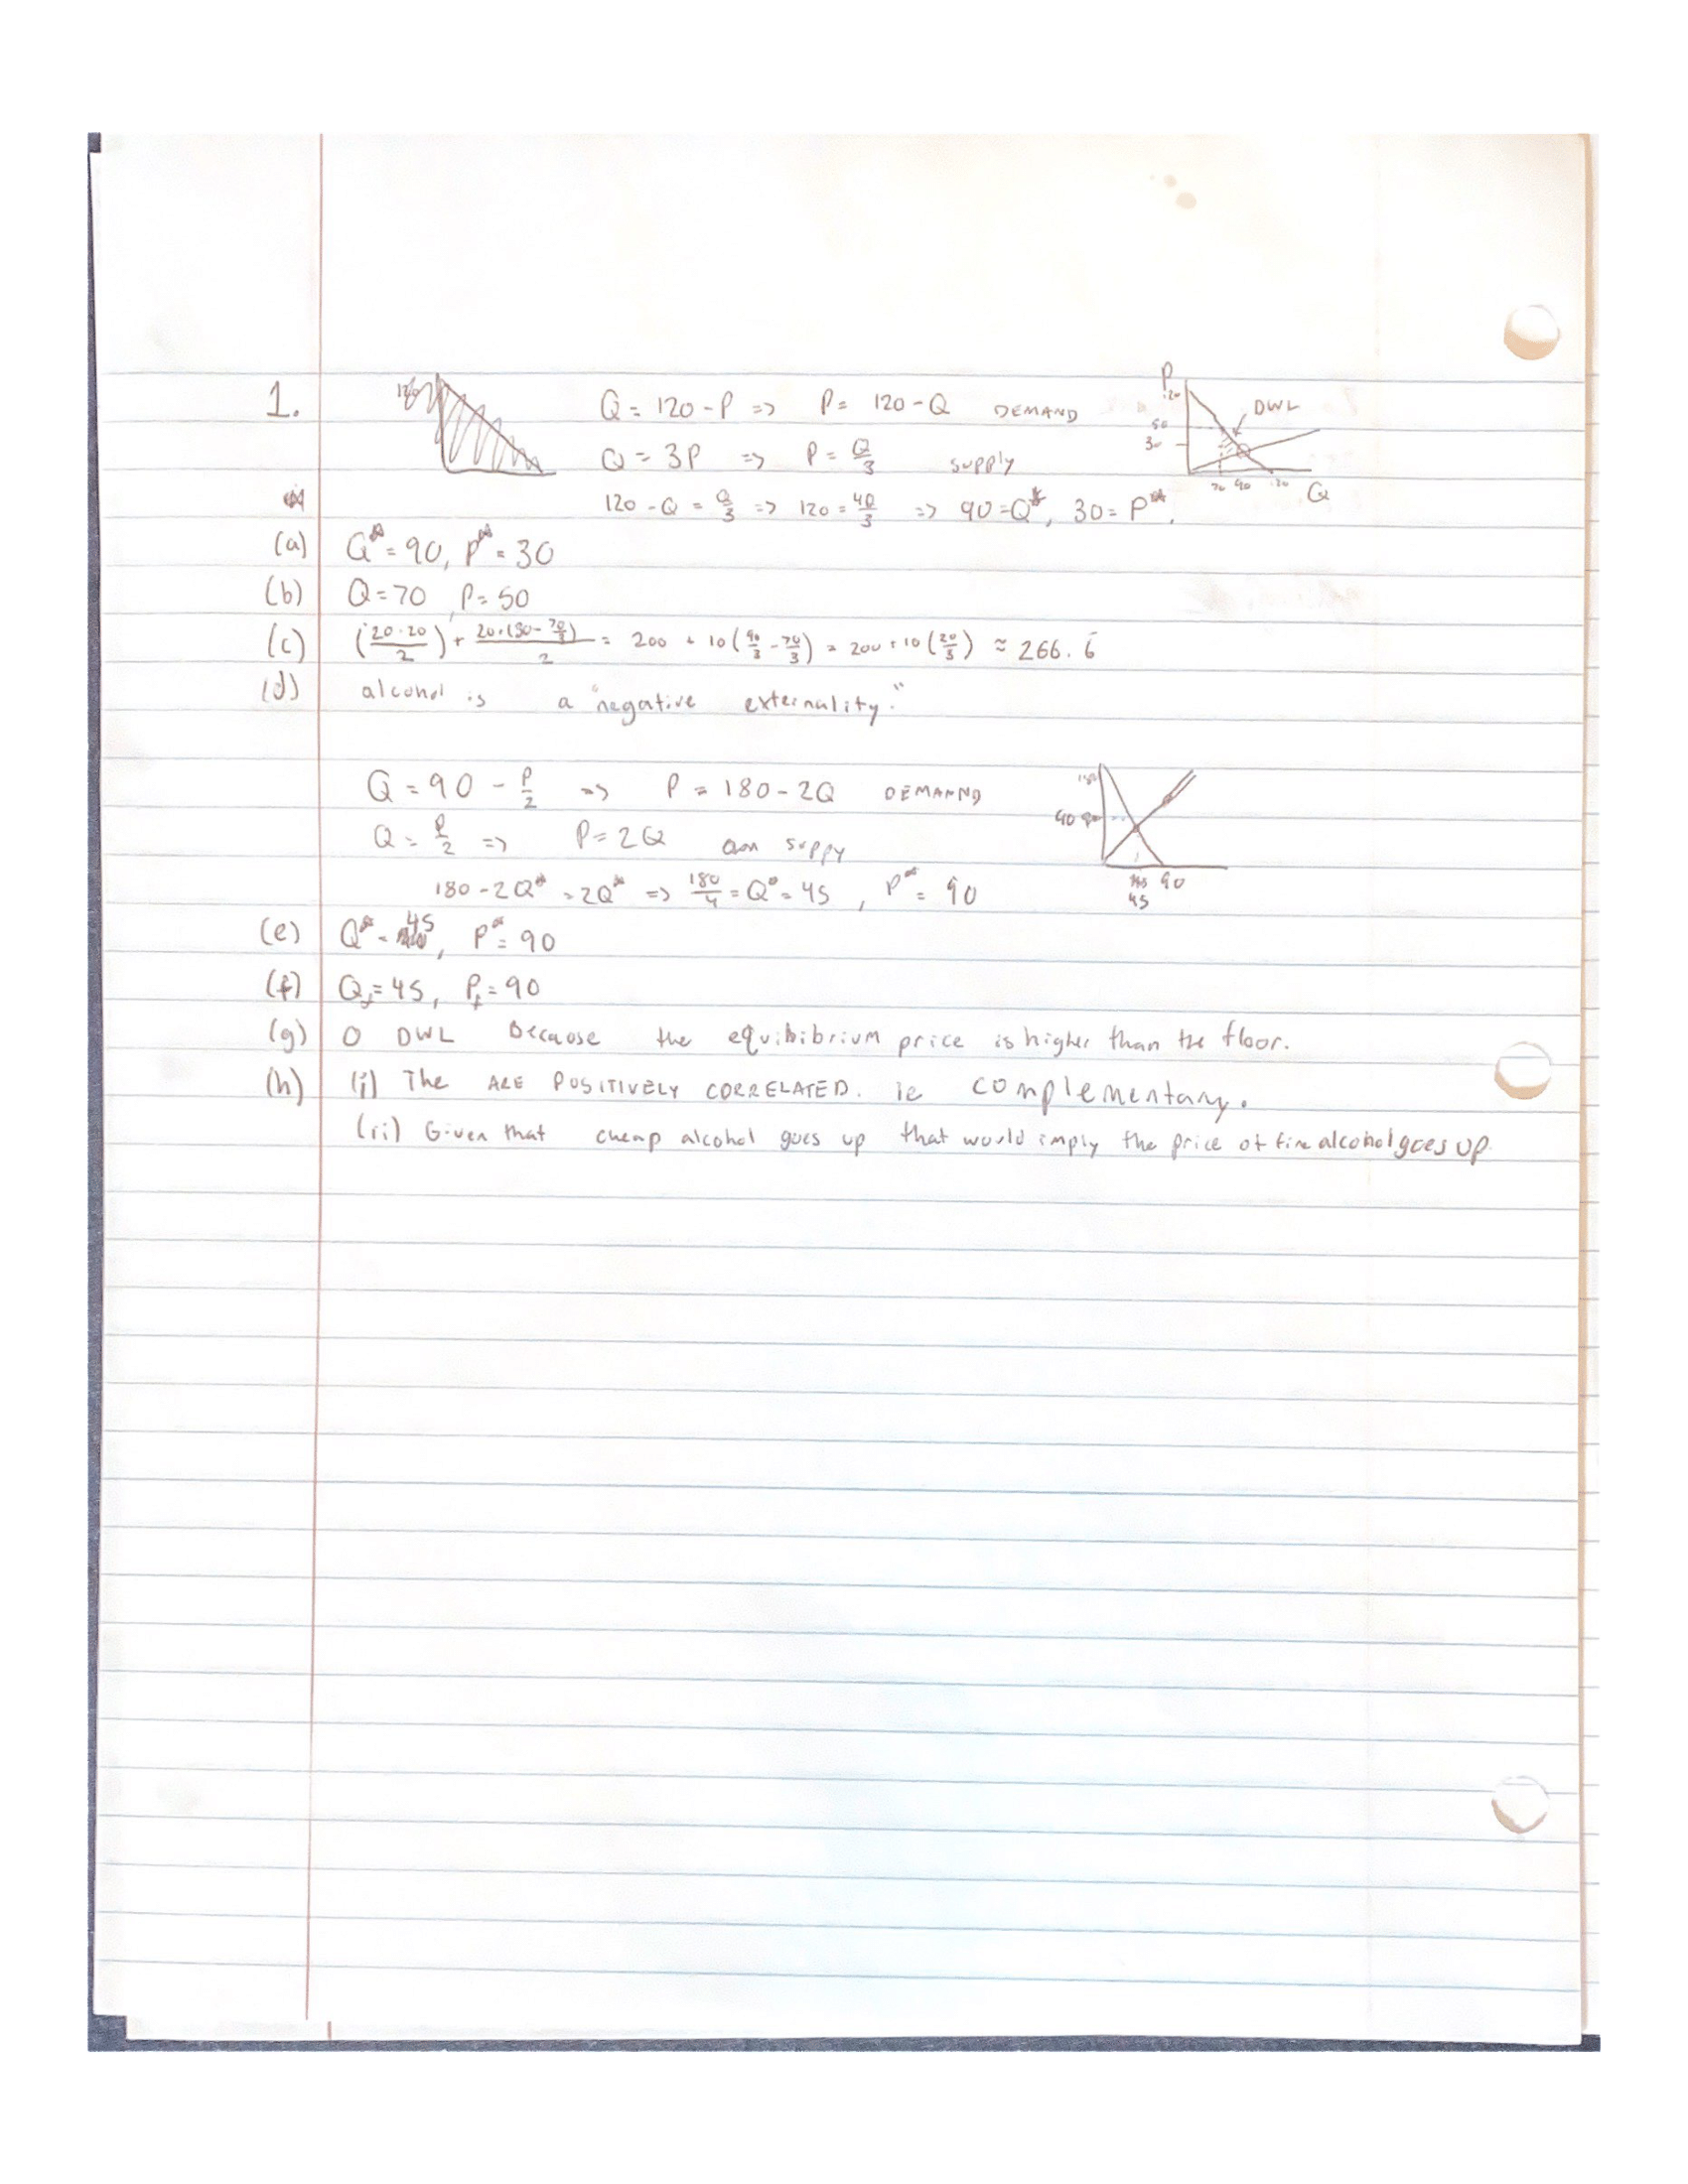 1. 120 Q = 120 - P => P = 120 - Q DEMAND
Q = 3P => P = Q/3 supply
P 120 50 30 DWL 70 90 120 Q
120 - Q = Q/3 => 120 = 4Q/3 => 90 = Q*, 30 = P*.
(a) Q* = 90, P* = 30
(b) Q = 70, P = 50
(c) (20·20/2) + 20·(30 - 70/3)/2 = 200 + 10(90/3 - 70/3) = 200 + 10(20/3) ≈ 266.6̄
(d) alcohol is a "negative externality."
Q = 90 - P/2 => P = 180 - 2Q DEMANND
Q = P/2 => P = 2Q suppy
180 90 45 90
180 - 2Q* = 2Q* => 180/4 = Q* = 45, P* = 90
(e) Q* = 45, P* = 90
(f) Qf = 45, Pf = 90
(g) 0 DWL Because the equibibrium price is higher than the floor.
(h) (i) The ARE POSITIVELY CORRELATED. ie complementary.
(ii) Given that cheap alcohol goes up that would imply the price of fine alcohol goes up.